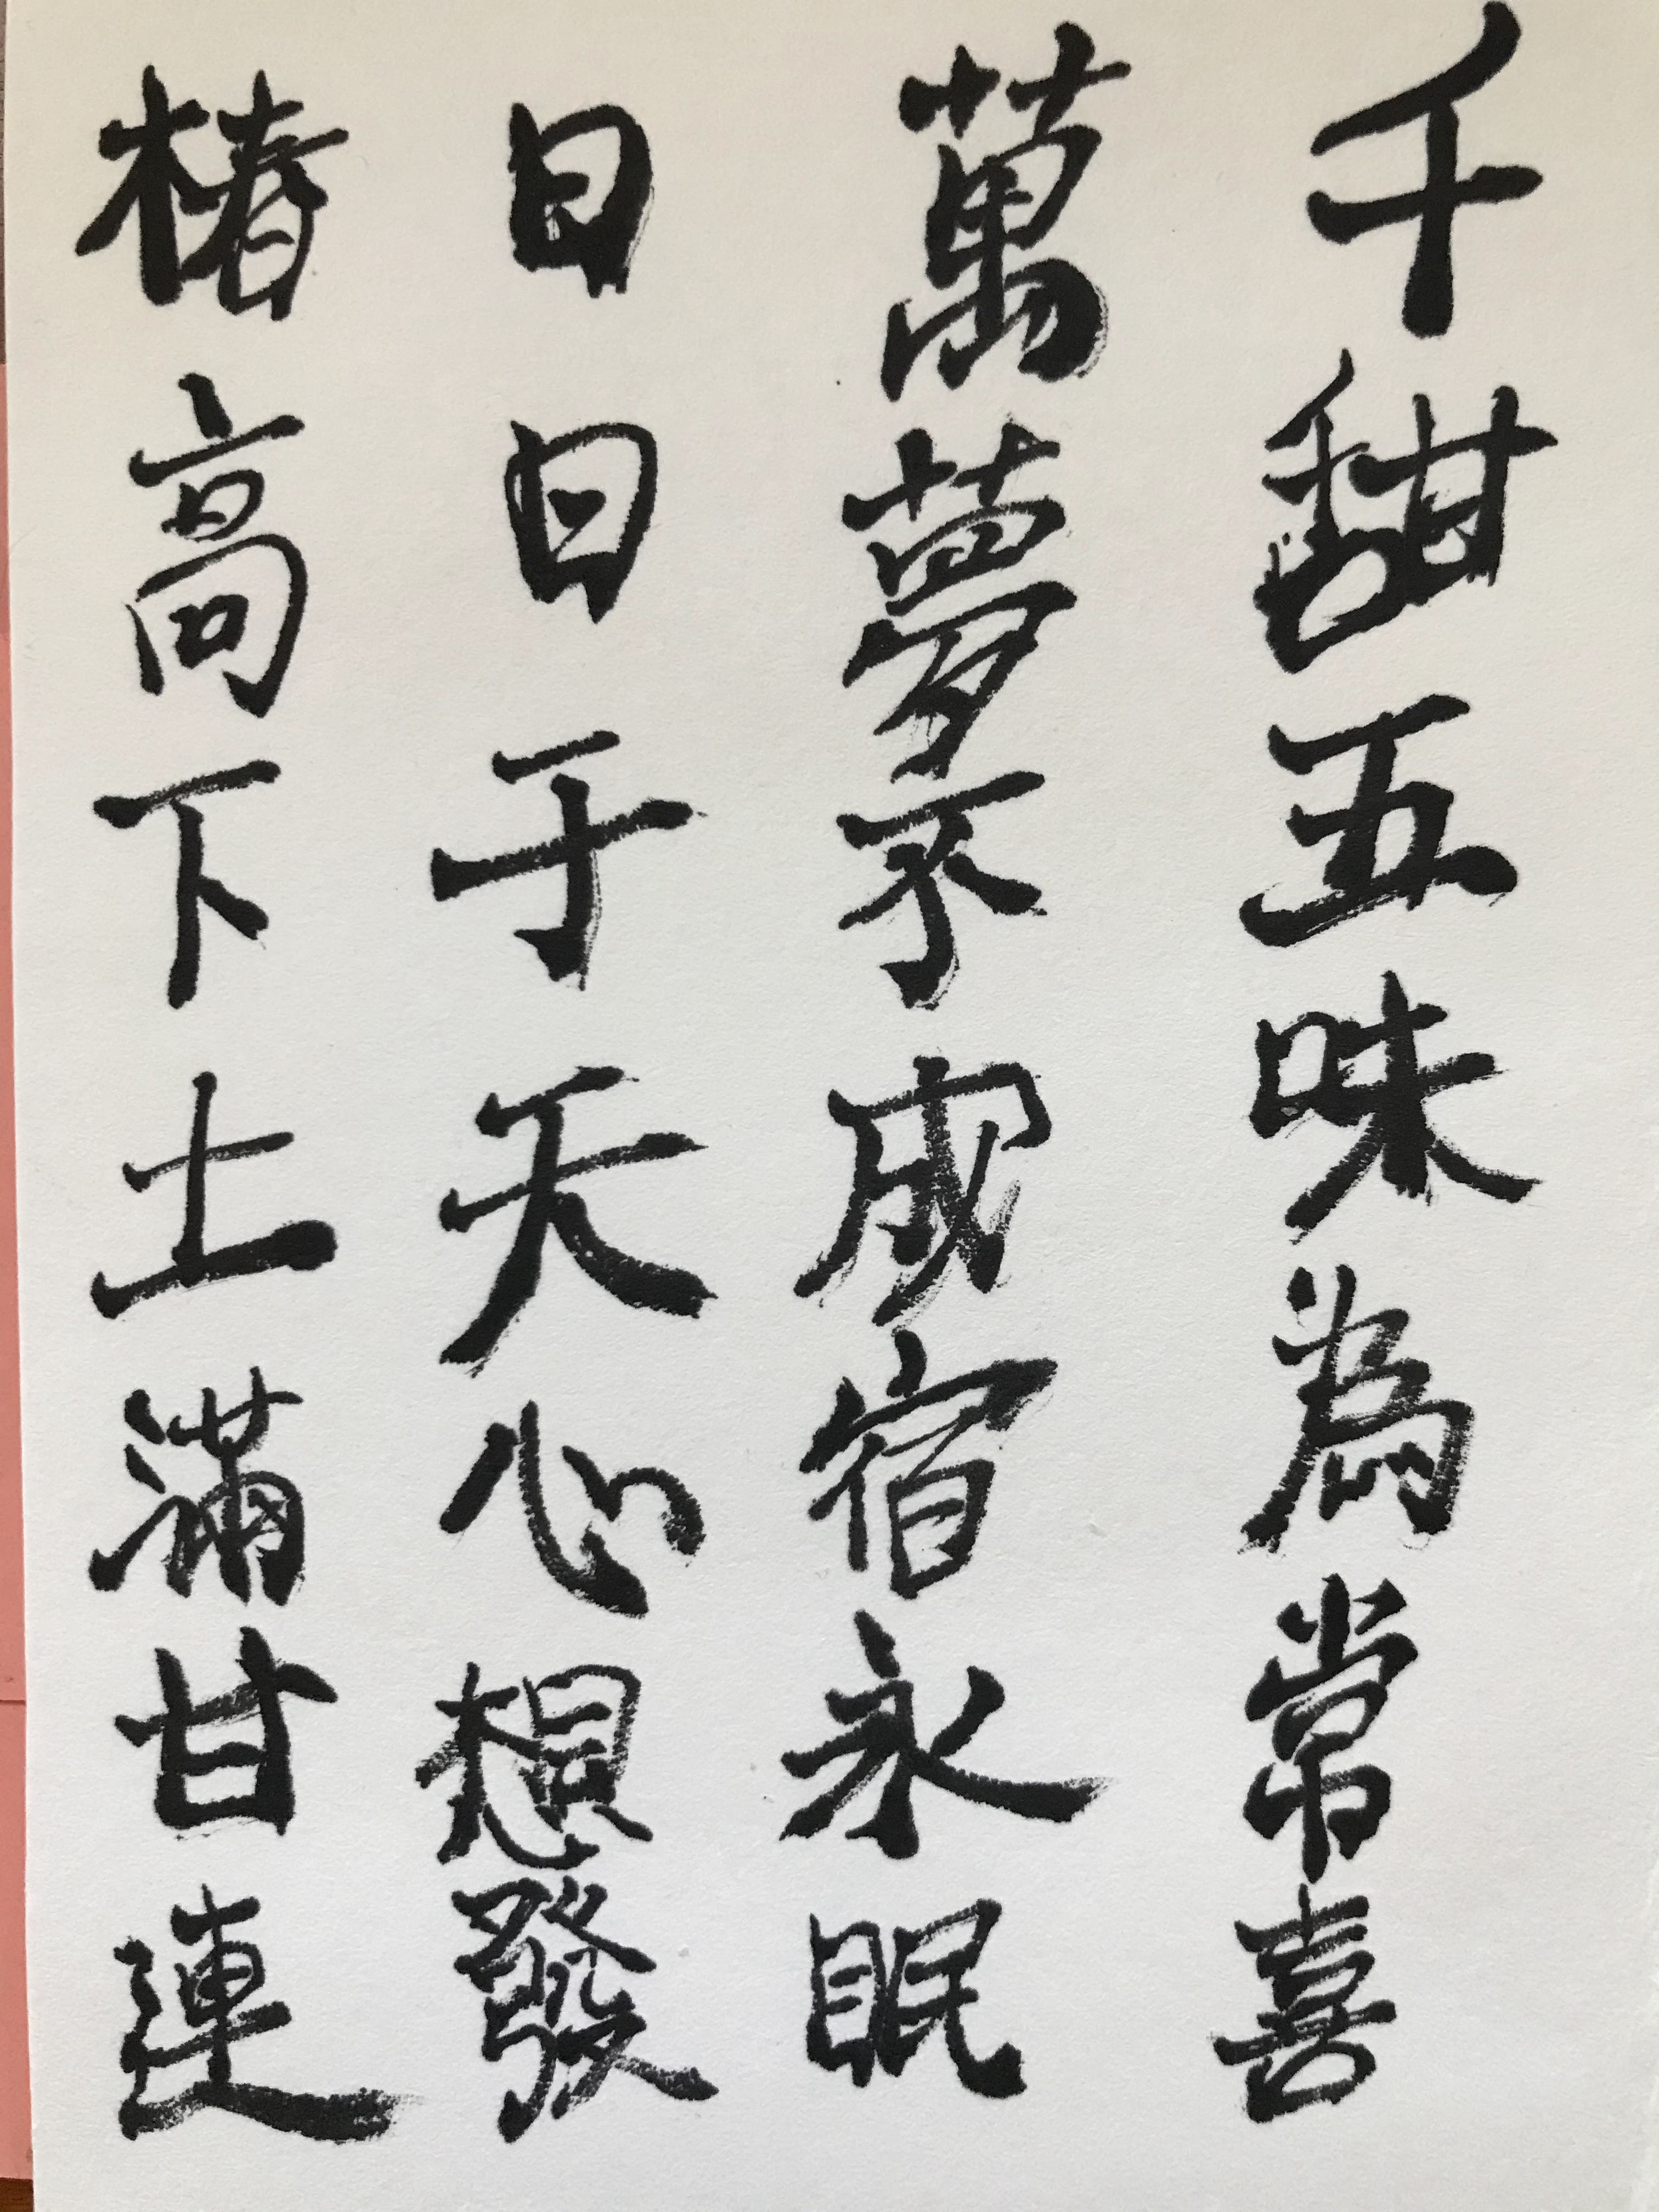 千甜五味為常喜
萬夢不成宿永眠
日日于天心想發
椿高下土滿甘連